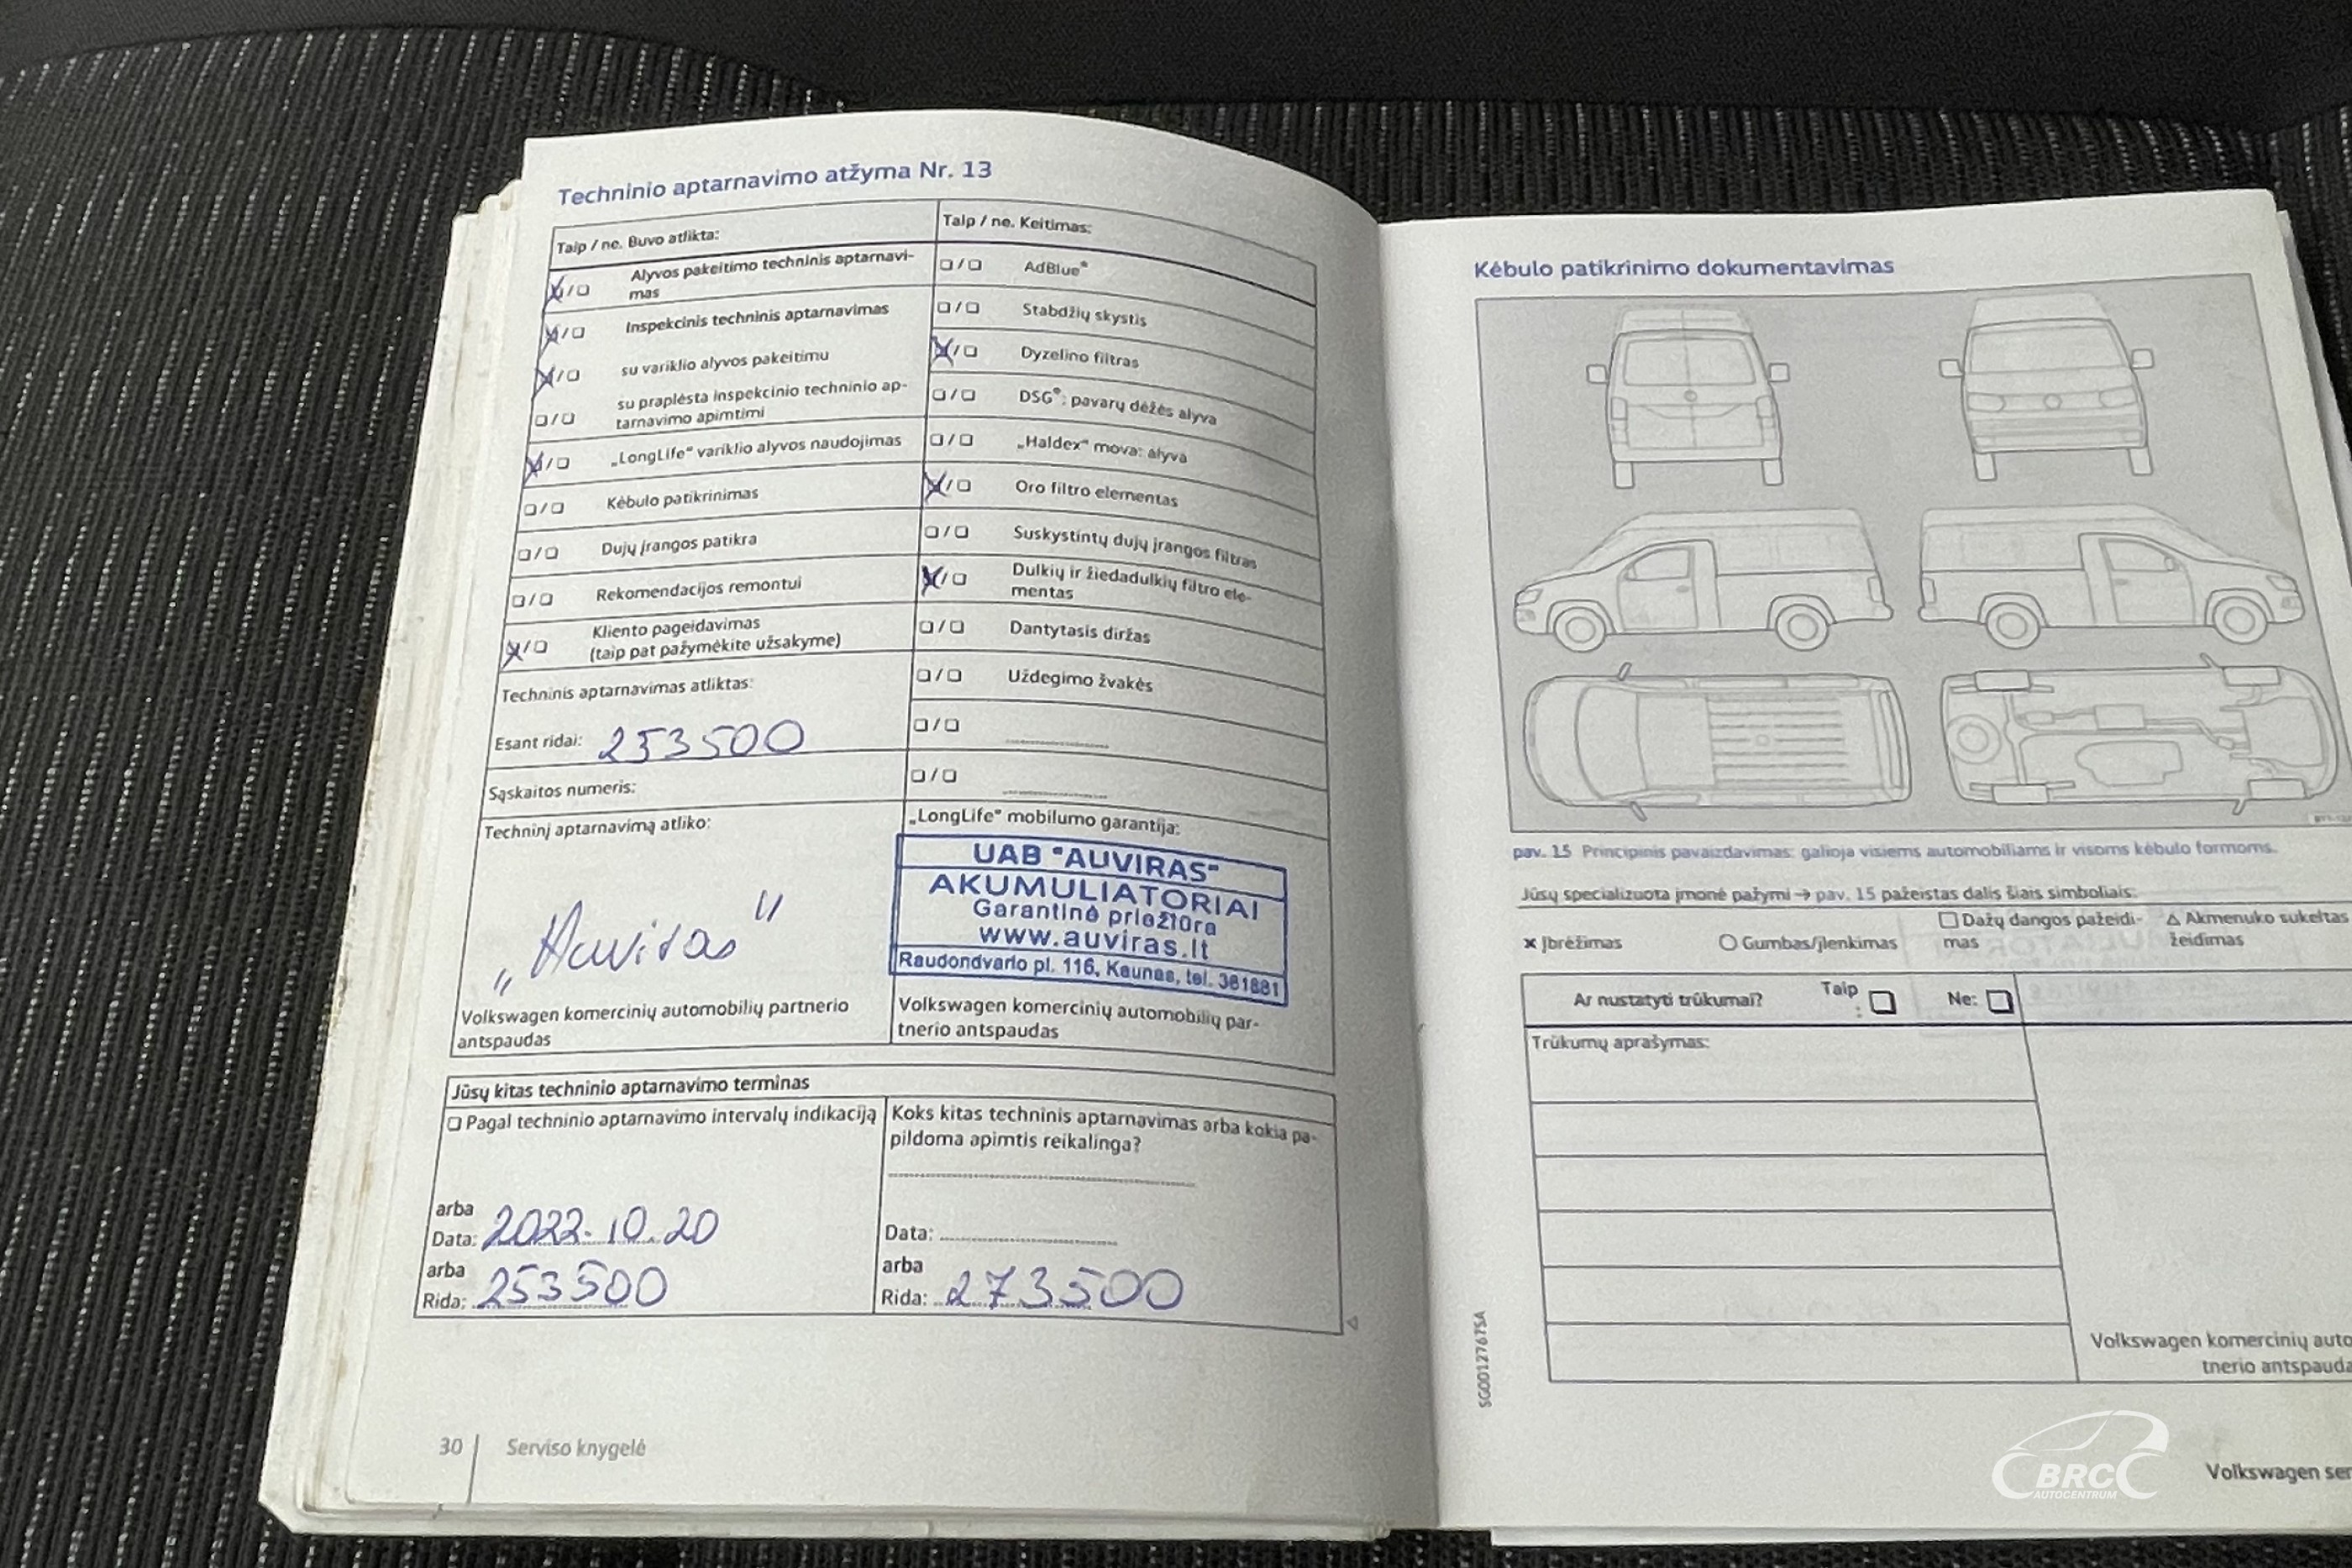 Techninio aptarnavimo atžyma Nr. 13
Taip / ne. Buvo atlikta:
Alyvos pakeitimo techninis aptarnavi-
mas
Inspekcinis techninis aptarnavimas
su variklio alyvos pakeitimu
su praplėsta inspekcinio techninio ap-
tarnavimo apimtimi
„LongLife“ variklio alyvos naudojimas
Kėbulo patikrinimas
Dujų įrangos patikra
Rekomendacijos remontui
Kliento pageidavimas
(taip pat pažymėkite užsakyme)
Techninis aptarnavimas atliktas:
Esant ridai: 253500
Sąskaitos numeris:
Techninį aptarnavimą atliko:
„Auviras"
Volkswagen komercinių automobilių partnerio
antspaudas
Taip / ne. Keitimas:
AdBlue®
Stabdžių skystis
Dyzelino filtras
DSG®: pavarų dėžės alyva
„Haldex“ mova: alyva
Oro filtro elementas
Suskystintų dujų įrangos filtras
Dulkių ir žiedadulkių filtro ele-
mentas
Dantytasis diržas
Uždegimo žvakės
„LongLife“ mobilumo garantija:
UAB "AUVIRAS"
AKUMULIATORIAI
Garantinė priežiūra
www.auviras.lt
Raudondvario pl. 116, Kaunas, tel. 361881
Volkswagen komercinių automobilių par-
tnerio antspaudas
Jūsų kitas techninio aptarnavimo terminas
Pagal techninio aptarnavimo intervalų indikaciją
arba
Data: 2022.10.20
arba
Rida: 253500
Koks kitas techninis aptarnavimas arba kokia pa-
pildoma apimtis reikalinga?
Data:
arba
Rida: 273500
30 Serviso knygelė
Kėbulo patikrinimo dokumentavimas
pav. 15 Principinis pavaizdavimas: galioja visiems automobiliams ir visoms kėbulo formoms.
Jūsų specializuota įmonė pažymi → pav. 15 pažeistas dalis šiais simboliais:
x Įbrėžimas
Gumbas/įlenkimas
Dažų dangos pažeidi-
mas
Akmenuko sukeltas
žeidimas
Ar nustatyti trūkumai? Taip
: Ne:
Trūkumų aprašymas:
Volkswagen komercinių auto
tnerio antspauda
SG0012767SA
Volkswagen ser
BRC
AUTOCENTRUM